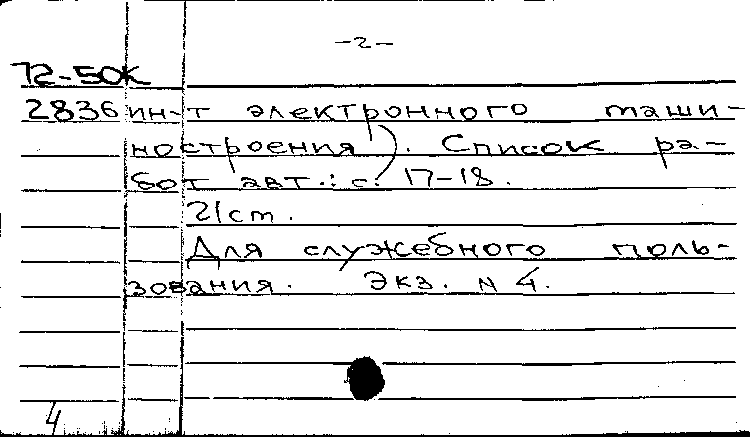 -2-
72-50К
2836 ин-т электронного маши-
ностроения). Список ра-
бот авт.: с. 17-18.
21 см.
Для служебного поль-
зования. Экз. N 4.
4